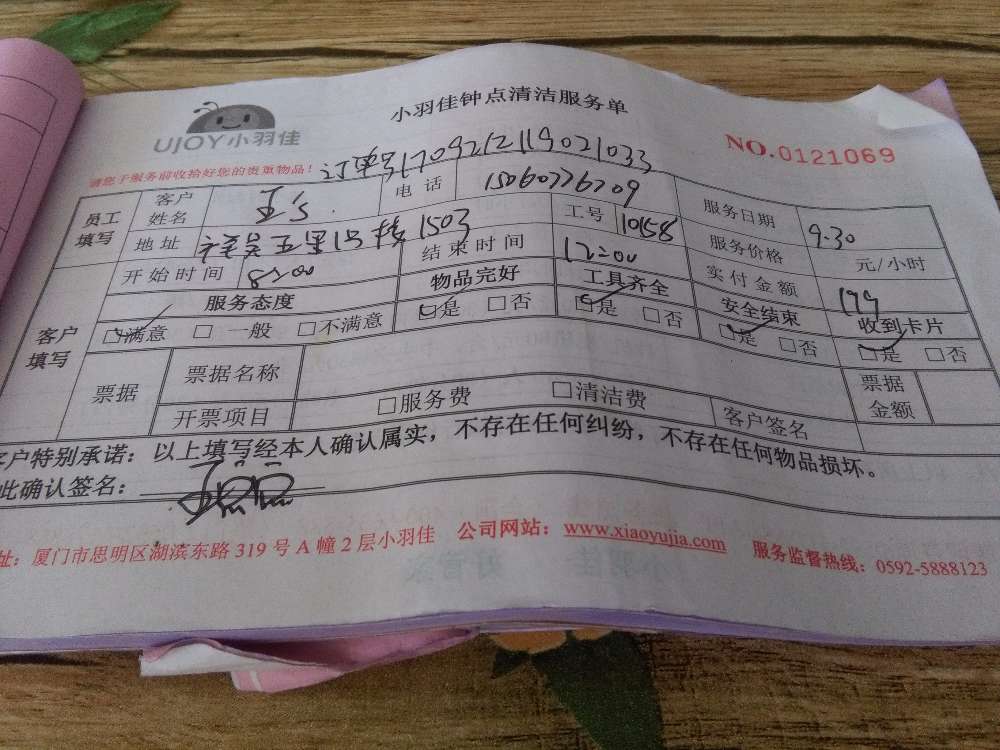 小羽佳钟点清洁服务单
UJOY小羽佳
NO.0121069
请您于服务前收拾好您的贵重物品!
订单号1709212119021033
员工填写 客户姓名 电话 15060776709 服务日期 9.30
地址 五里1号楼1503 工号 10158 服务价格 元/小时
开始时间 8:00 结束时间 12:00 实付金额 199
客户填写 服务态度 物品完好 工具齐全 安全结束 收到卡片
□满意 □一般 □不满意 □是 □否 □是 □否 □是 □否 □是 □否
票据 票据名称 票据金额
开票项目 □服务费 □清洁费 客户签名
客户特别承诺：以上填写经本人确认属实，不存在任何纠纷，不存在任何物品损坏。
此确认签名：
址：厦门市思明区湖滨东路 319 号 A 幢 2 层小羽佳 公司网站：www.xiaoyujia.com 服务监督热线：0592-5888123